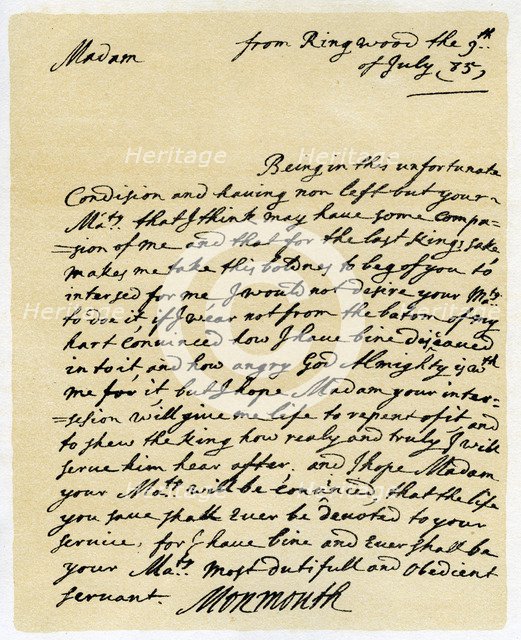 from Ringwood the 9th
Madam
of July (85)
Being in this unfortunate
Condision and having non left but your
Maty. that I think may have some compa=
=sion of me and that for the last Kings sake
makes me take this boldnes to beg of you to
intersed for me I would not desire your Maty.
to doe it if I wear not from the botom of my
hart convinced how I have bine diseaved
in to it and how angry God Almighty is wth
me for it but I hope Madam your inter=
=sesion will give me life to repent of it and
to shew the King how realy and truly I will
serve him hear after. and I hope Madam
your Maty. will be convinced that the life
you save shall Ever be devoted to your
service, for I have bine and Ever shall be
your Matys. most dutifull and obedient
servant. Monmouth
Heritage Heritage
Heritage Heritage
Heritage Heritage